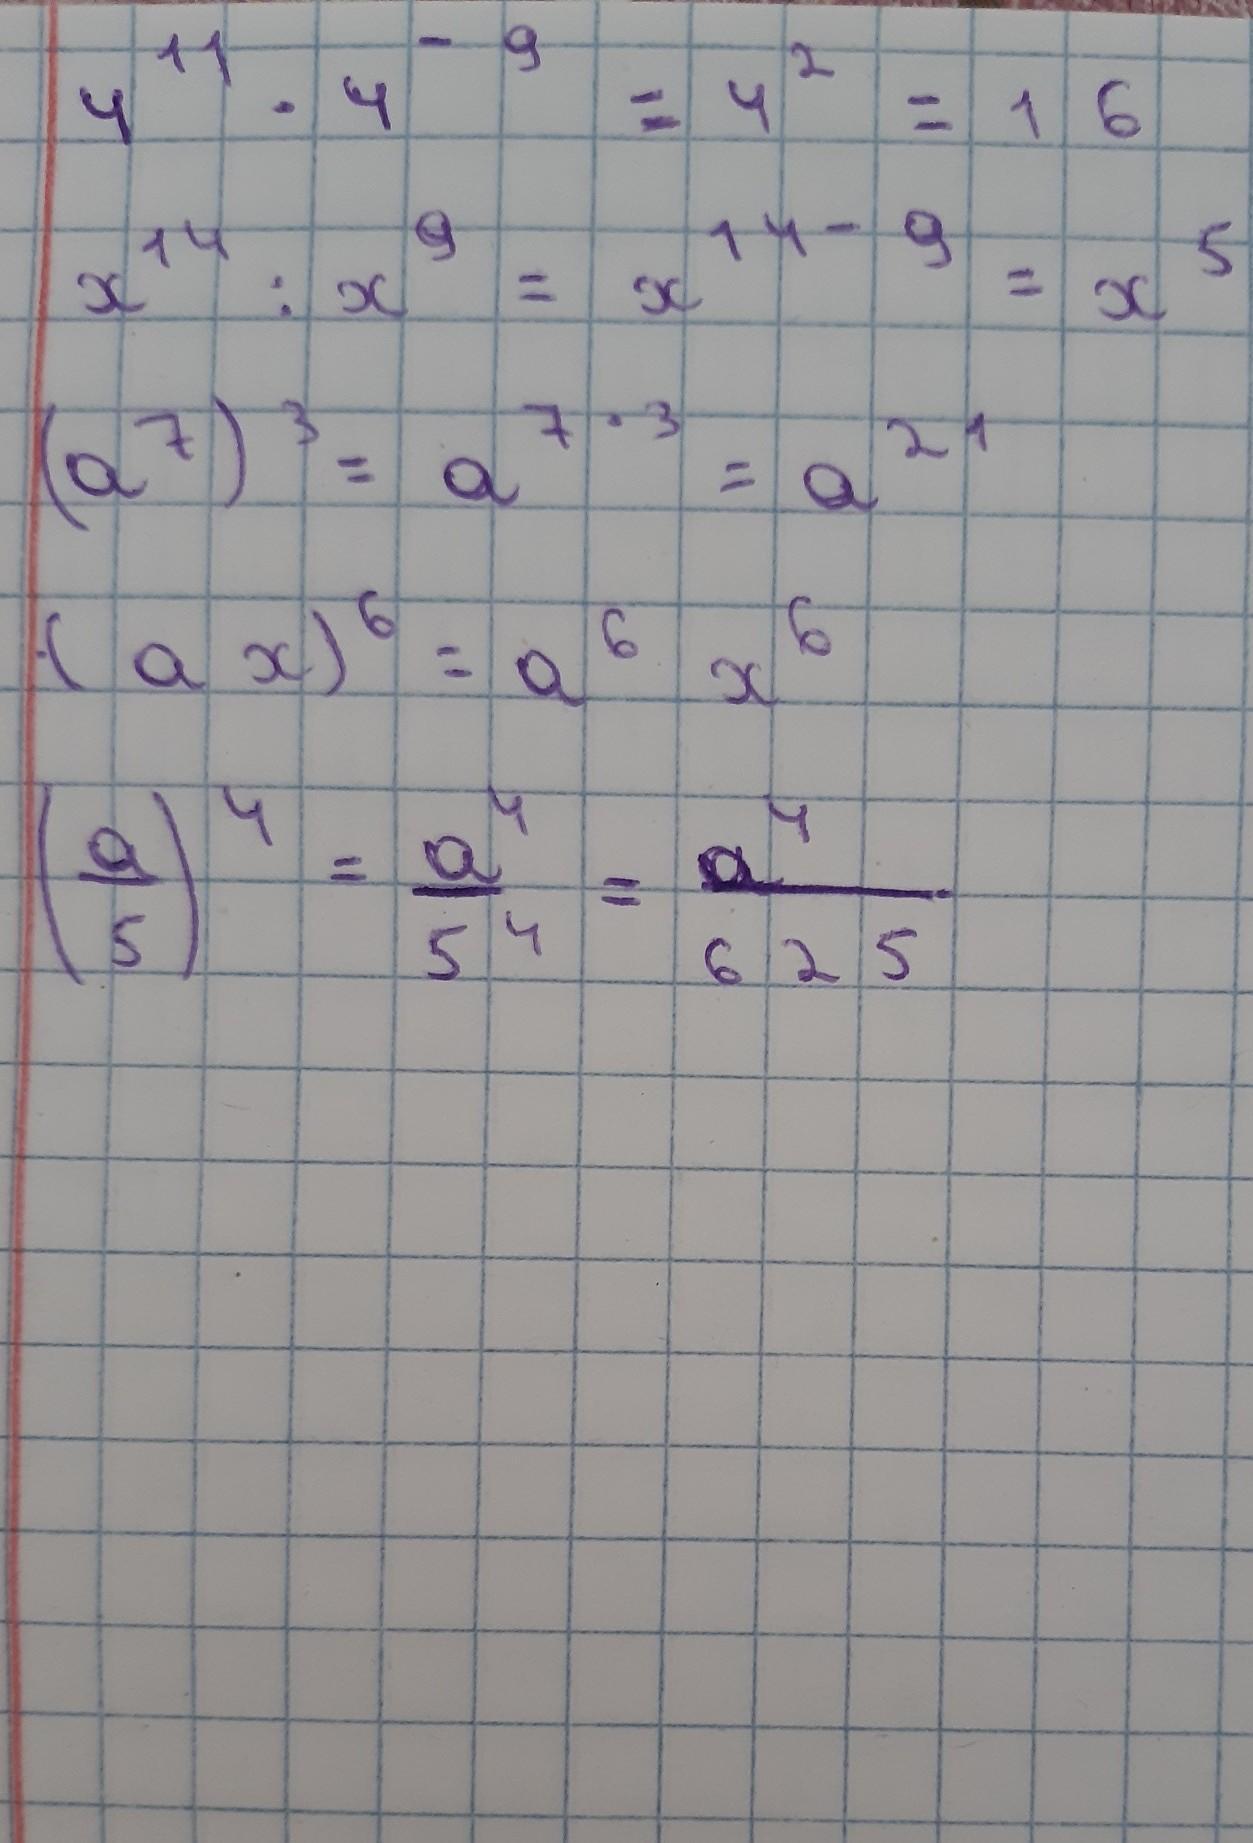 4¹¹ · 4⁻⁹ = 4² = 16
x¹⁴ : x⁹ = x¹⁴⁻⁹ = x⁵
(a⁷)³ = a⁷˙³ = a²¹
(ax)⁶ = a⁶ x⁶
(a/5)⁴ = a⁴/5⁴ = a⁴/625